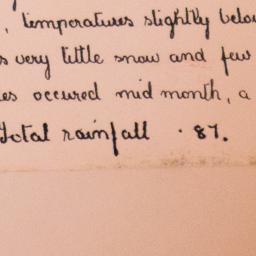 , temperatures slightly below
s very little snow and few
es occured mid month, a
Total rainfall . 87.